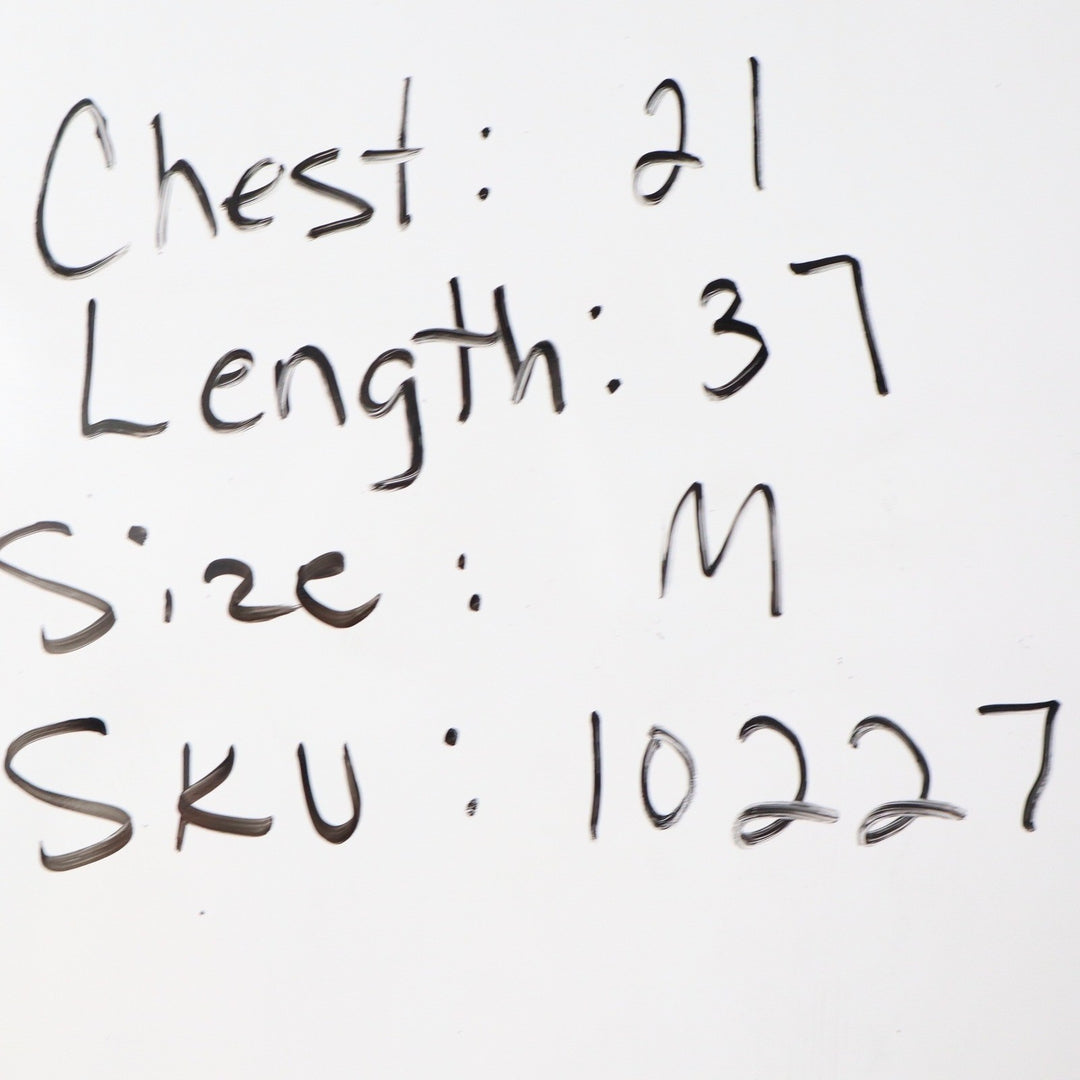 Chest: 21
Length: 37
Size: M
SKU: 10227